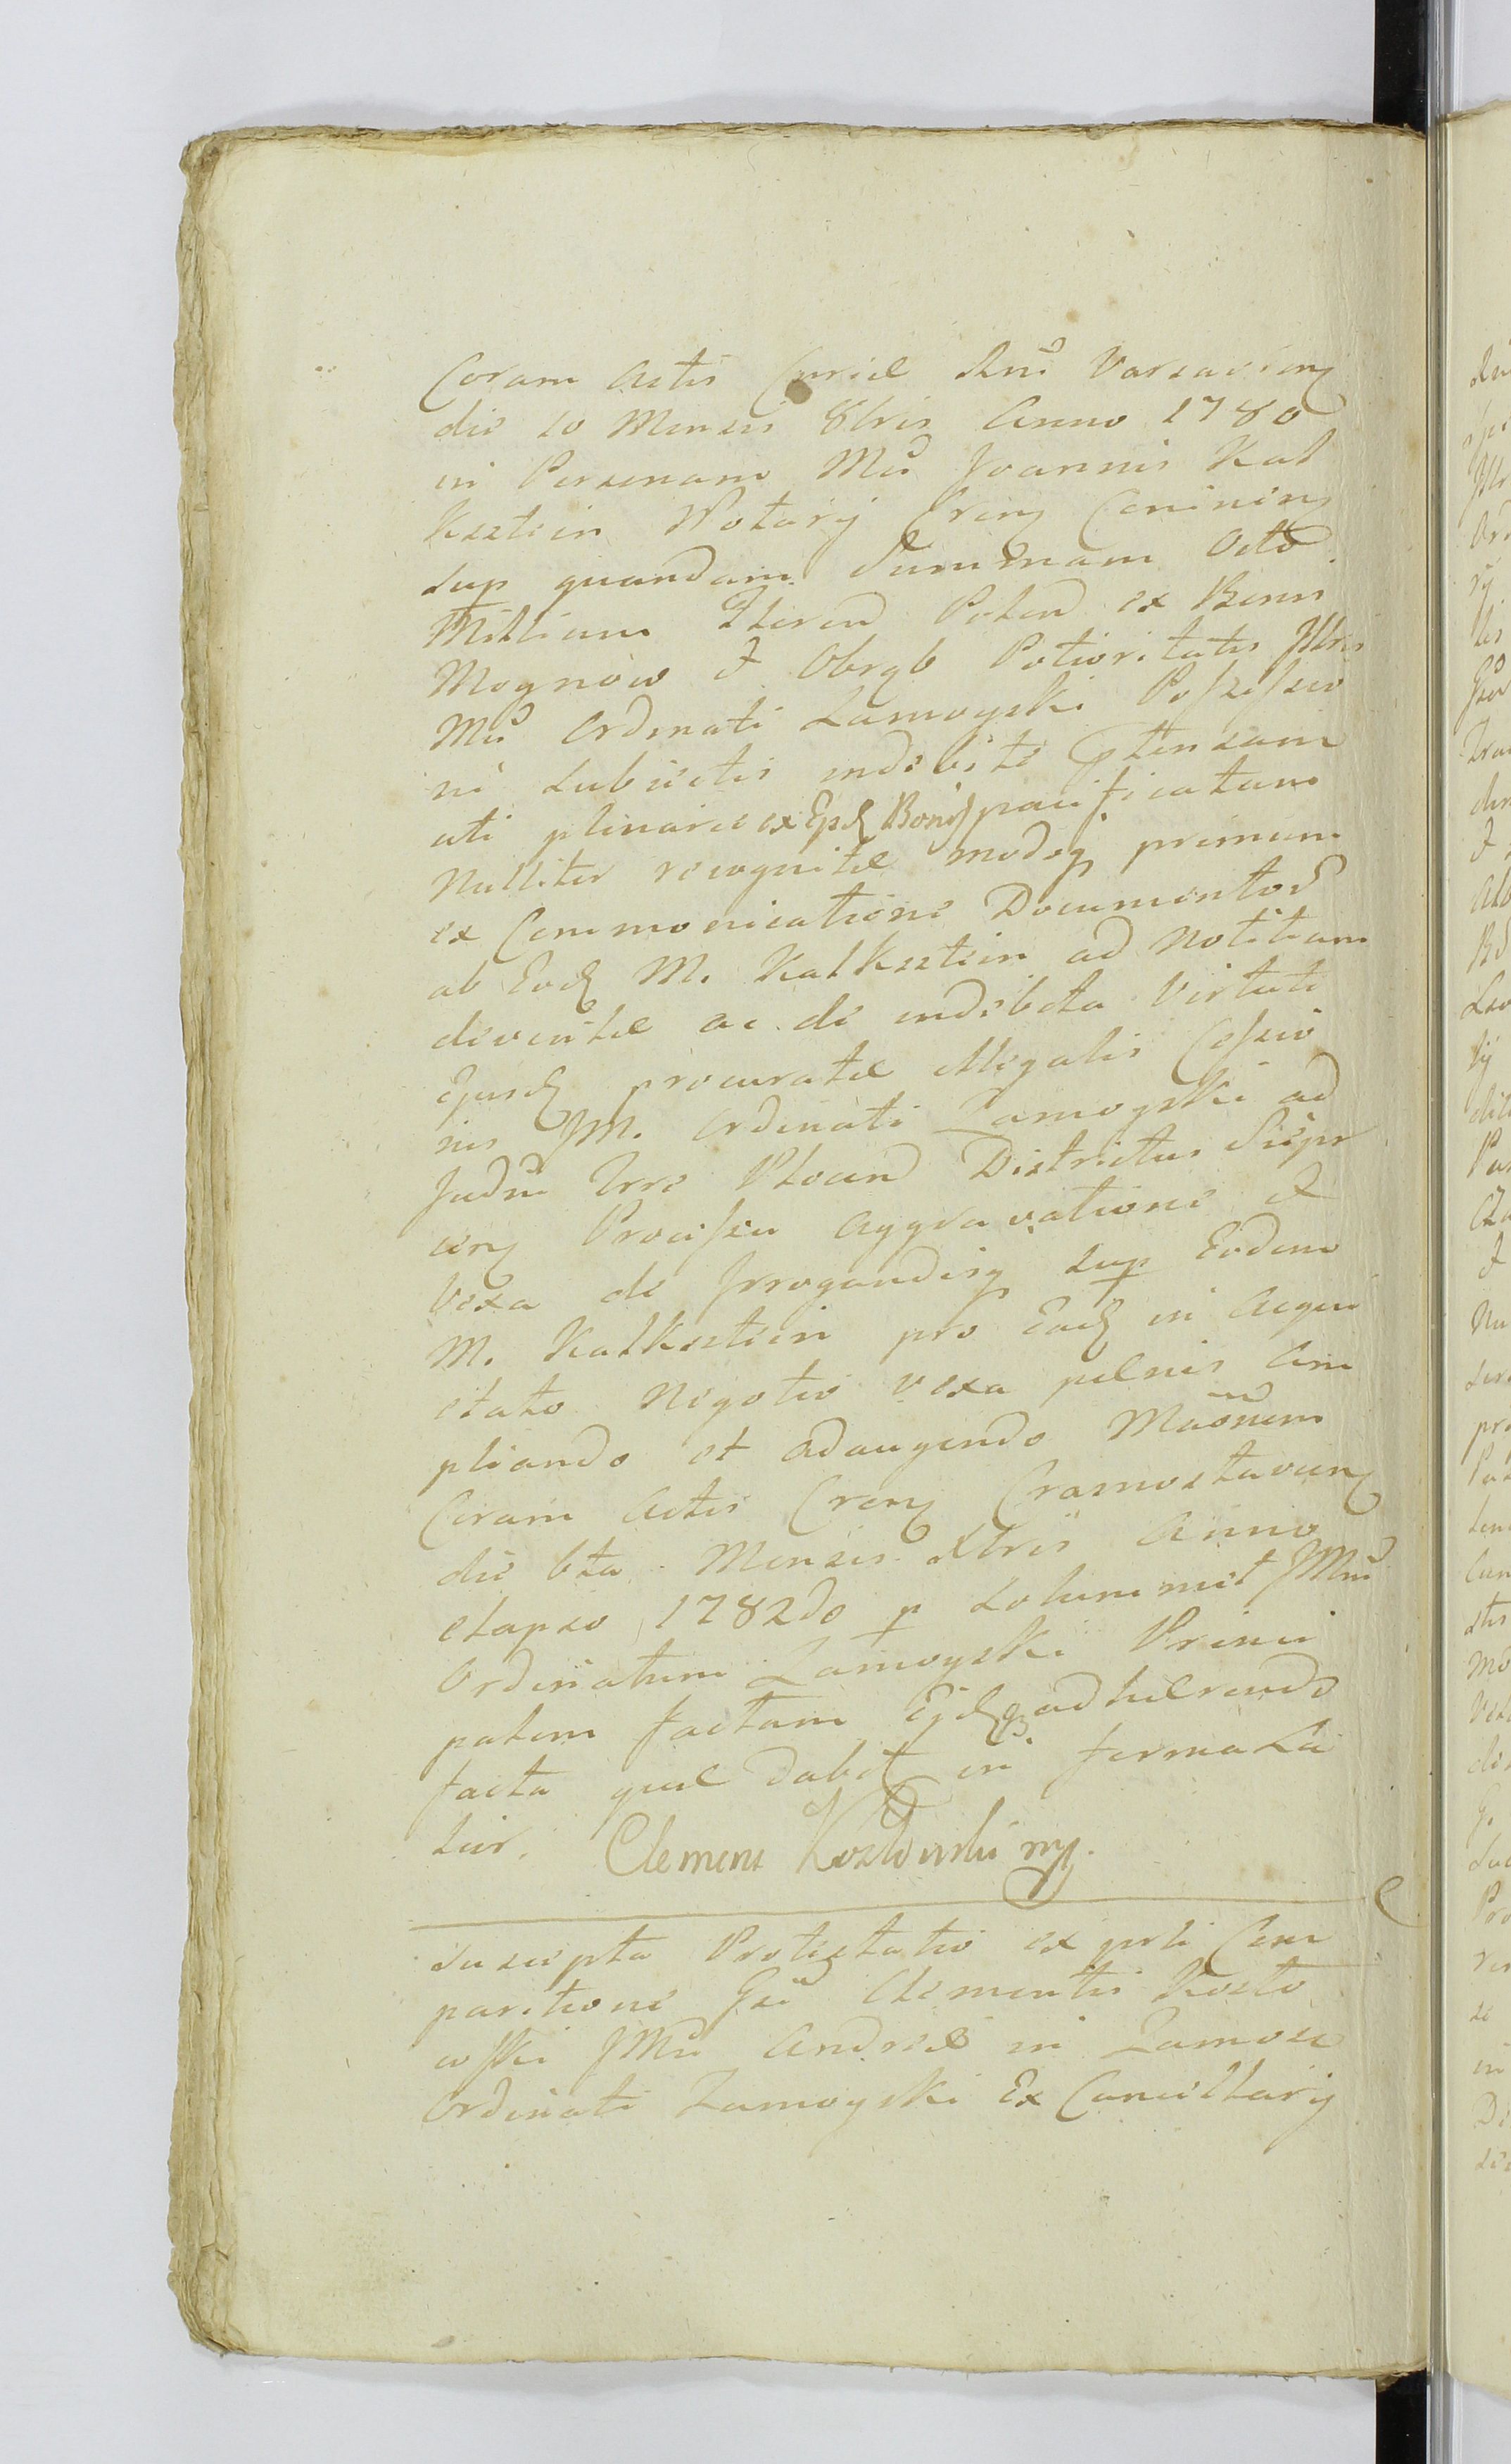 Coram Actis Curiæ Rñi Varsavieng
die 10 Mensis 8bris Anno 1780
in Personam Mci Joannis Kal
ksztein Notarij Creng Caminieng
sup quandam Summam Octo
Millium Fleren Polon ex Bonis
Mognow & Obrąb Potioritatis Jllris
Mci Ordinati Zamoyski Possessio
ni Subiectis indebite ptensam
uti plinarie ex Epdę Bonis pacificatam
Nulliter recognitæ modoq primum
ex Commonicatione Documentor
ab Eodę M. Kalksztein ad Notitiam
deventæ ac de indebita Virtute
Ejusdę procuratæ illegalis Cessio
nis JM. Ordinati Zamoyski ad
Judm Trre Plocen Districtus Siepr
ceng Processu aggravatione &
Vexa de Jrrogandisq sup Eodem
M. Kalksztein pro Eadę in Acqui
sitato Negotio vexa pænis Am
pliando et adaugendo Maõnem
Coram Actis Creng Crasnostavieng
die 6ta Mensis Xbris Anno
elapso 1782do p Solummet JMm
Ordinatum Zamoyski Princi
palem factam Ejdęq adhærendo
facta quæ dabit in forma La
tior. Clemens Kozłowski mp.
Suscepta Protestatio ex psti Com
paritione Gsi Clementis Kozło
wski JMci Andreæ in Zamosc
Ordinati Zamoyski Ex Cancellarij